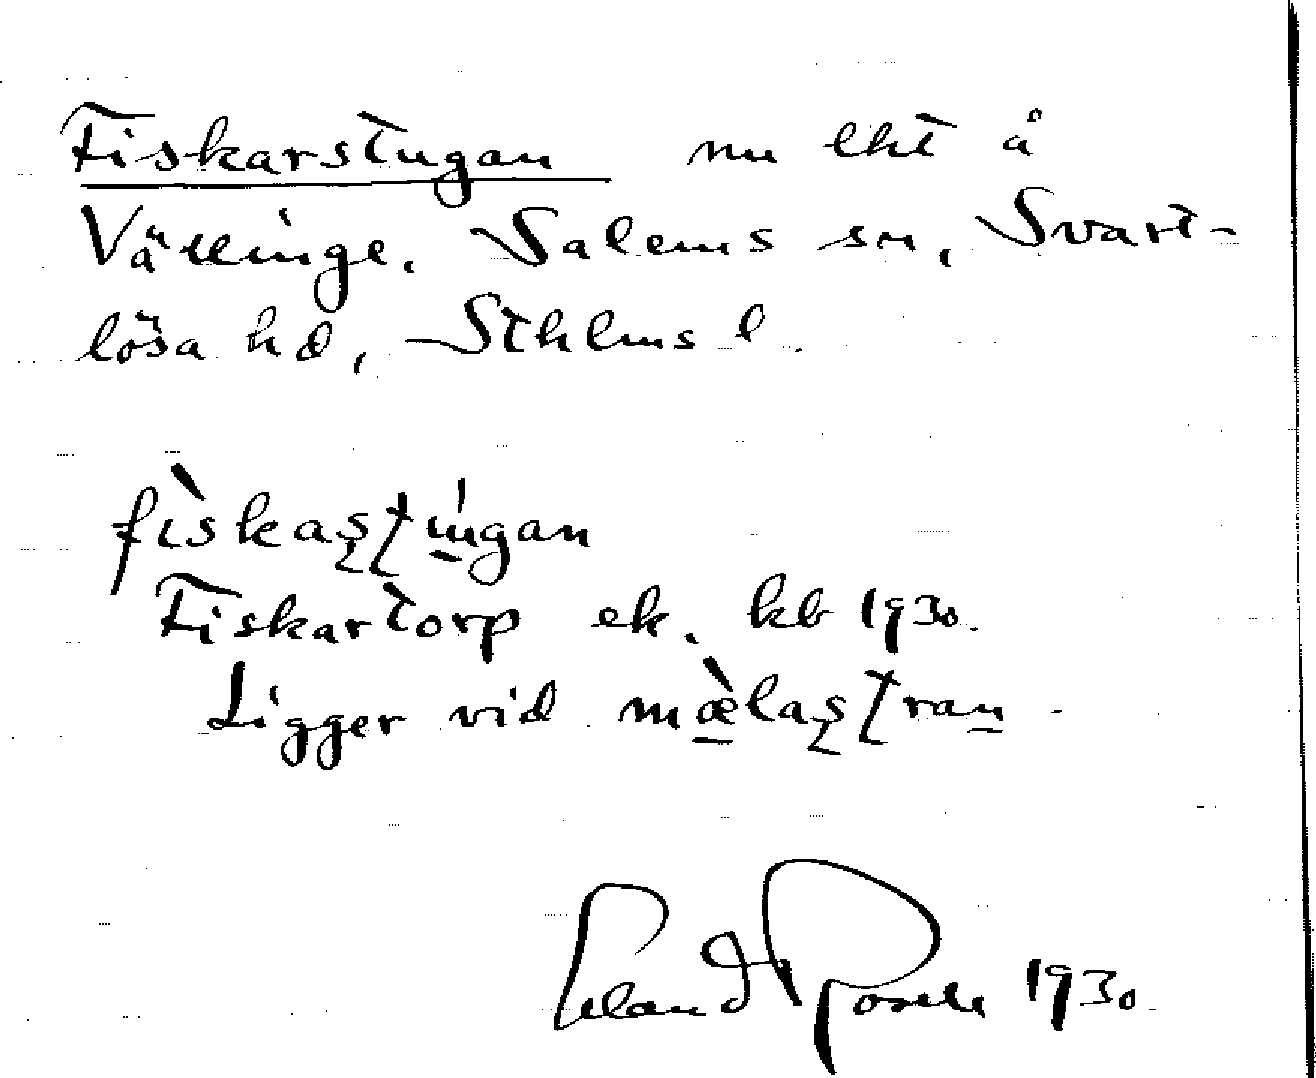 Fiskarstugan nu lht å
Vällinge, Salems sn, Svart-
lösa hd, Sthlms l.
fìskaʂʈúgan
Fiskartorp ek. kb 1930.
Ligger vid mæ̀laʂʈran
Erland Rosell 1930